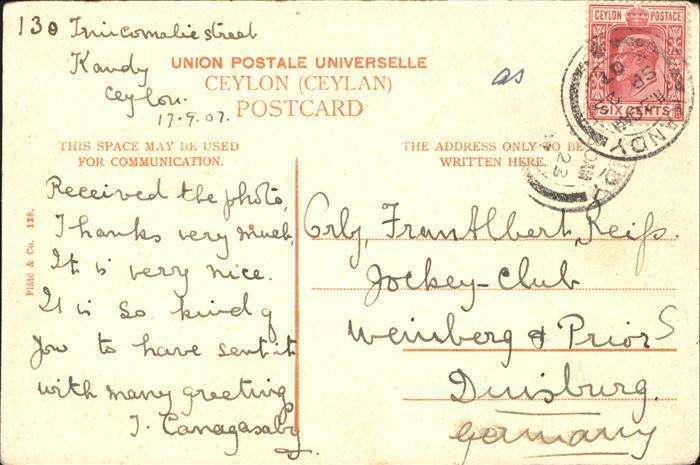 130 Trincomalie street
Kandy
Ceylon.
17-9.07.
UNION POSTALE UNIVERSELLE
CEYLON (CEYLAN)
POSTCARD
as
CEYLON POSTAGE
SIX CENTS
KANDY
THIS SPACE MAY BE USED
FOR COMMUNICATION.
THE ADDRESS ONLY TO BE
WRITTEN HERE.
Plâté & Co. 128.
Received the photo,
Thanks very much,
It is very nice.
It is so kind of
you to have sent it
with many greeting
T. Canagasaby
Frau Albert Reifs.
Jockey-Club
Weinberg & Prior S
Duisburg.
Germany